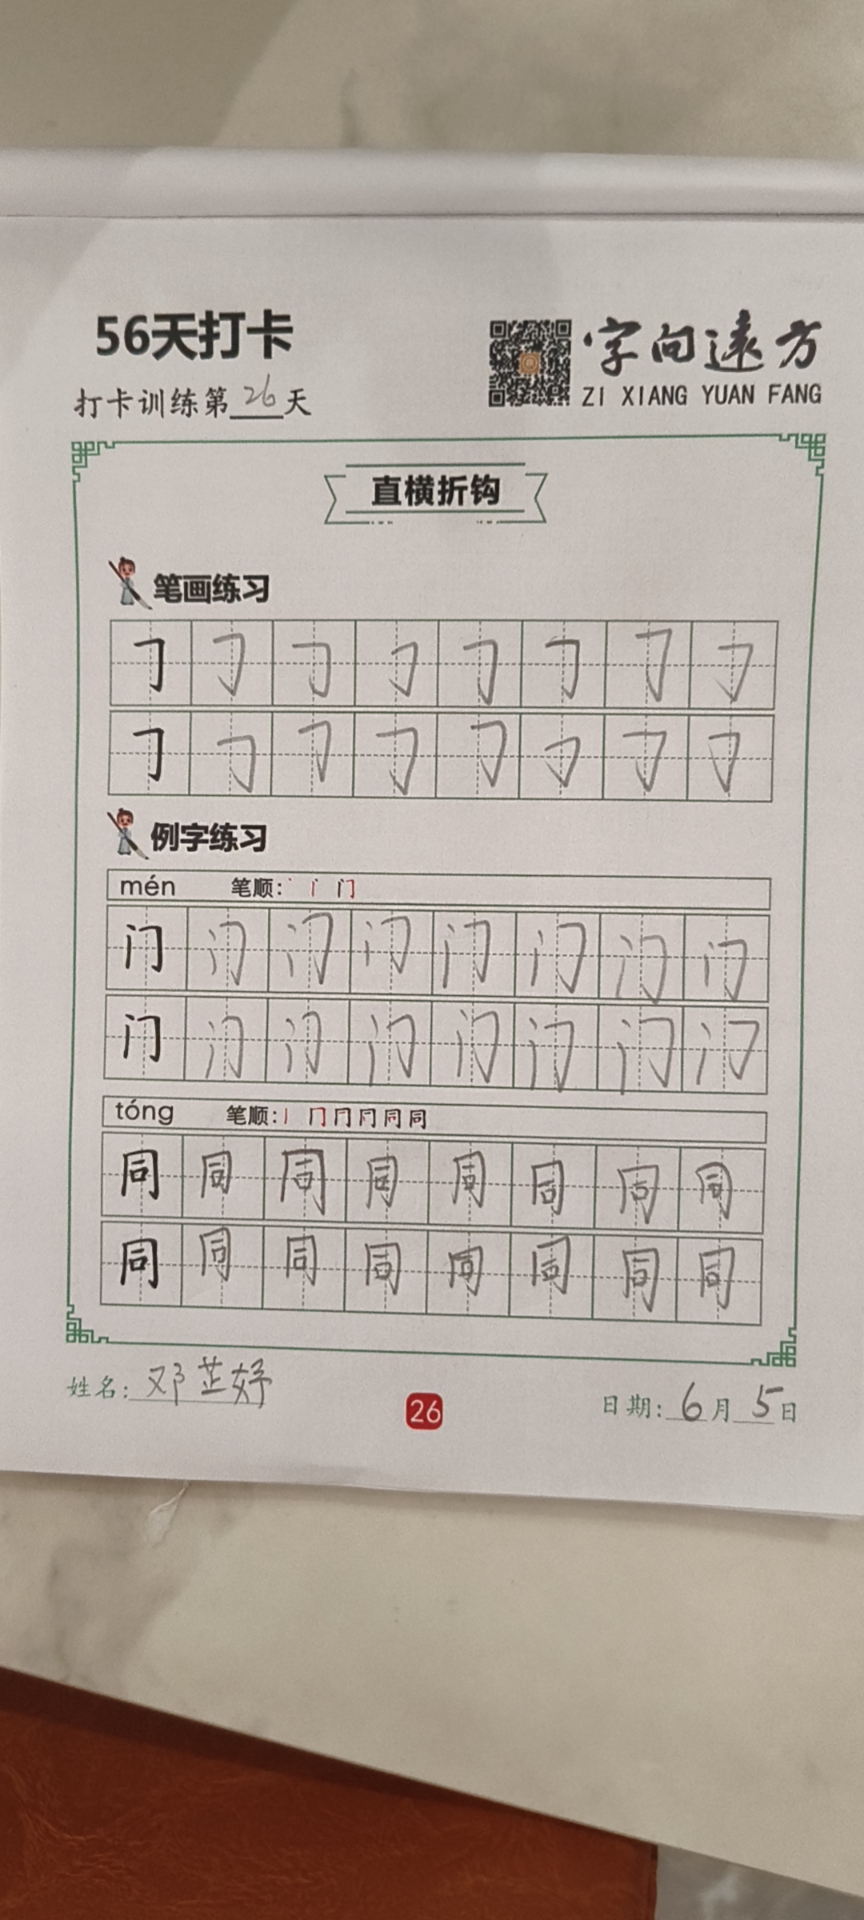 56天打卡
字向远方
ZI XIANG YUAN FANG
打卡训练第26天
直横折钩
笔画练习
𠃌 𠃌 𠃌 𠃌 𠃌 𠃌 𠃌 𠃌
𠃌 𠃌 𠃌 𠃌 𠃌 𠃌 𠃌 𠃌
例字练习
mén 笔顺: 丶 门
门 门 门 门 门 门 门 门
门 门 门 门 门 门 门 门
tóng 笔顺: 丨 冂 同
同 同 同 同 同 同 同 同
同 同 同 同 同 同 同 同
姓名: 邓芷妤
26
日期: 6月5日